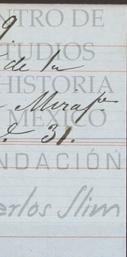 9
TRO DE
TUDIOS
de la
HISTORIA
MÉXICO
31.
NDACIÓN
arlos Slim